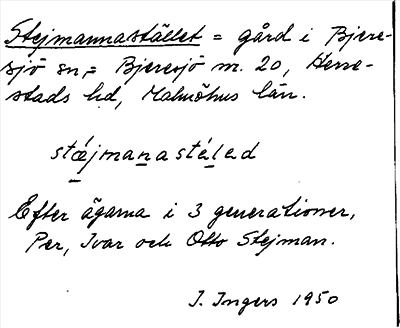 Stejmannastället = gård i Bjere-
sjö sn, = Bjeresjö nr. 20, Herre-
stads hd, Malmöhus län.
stǽjmanasté̱led
Efter ägarna i 3 generationer,
Per, Ivar och Otto Stejman.
I. Ingers 1950